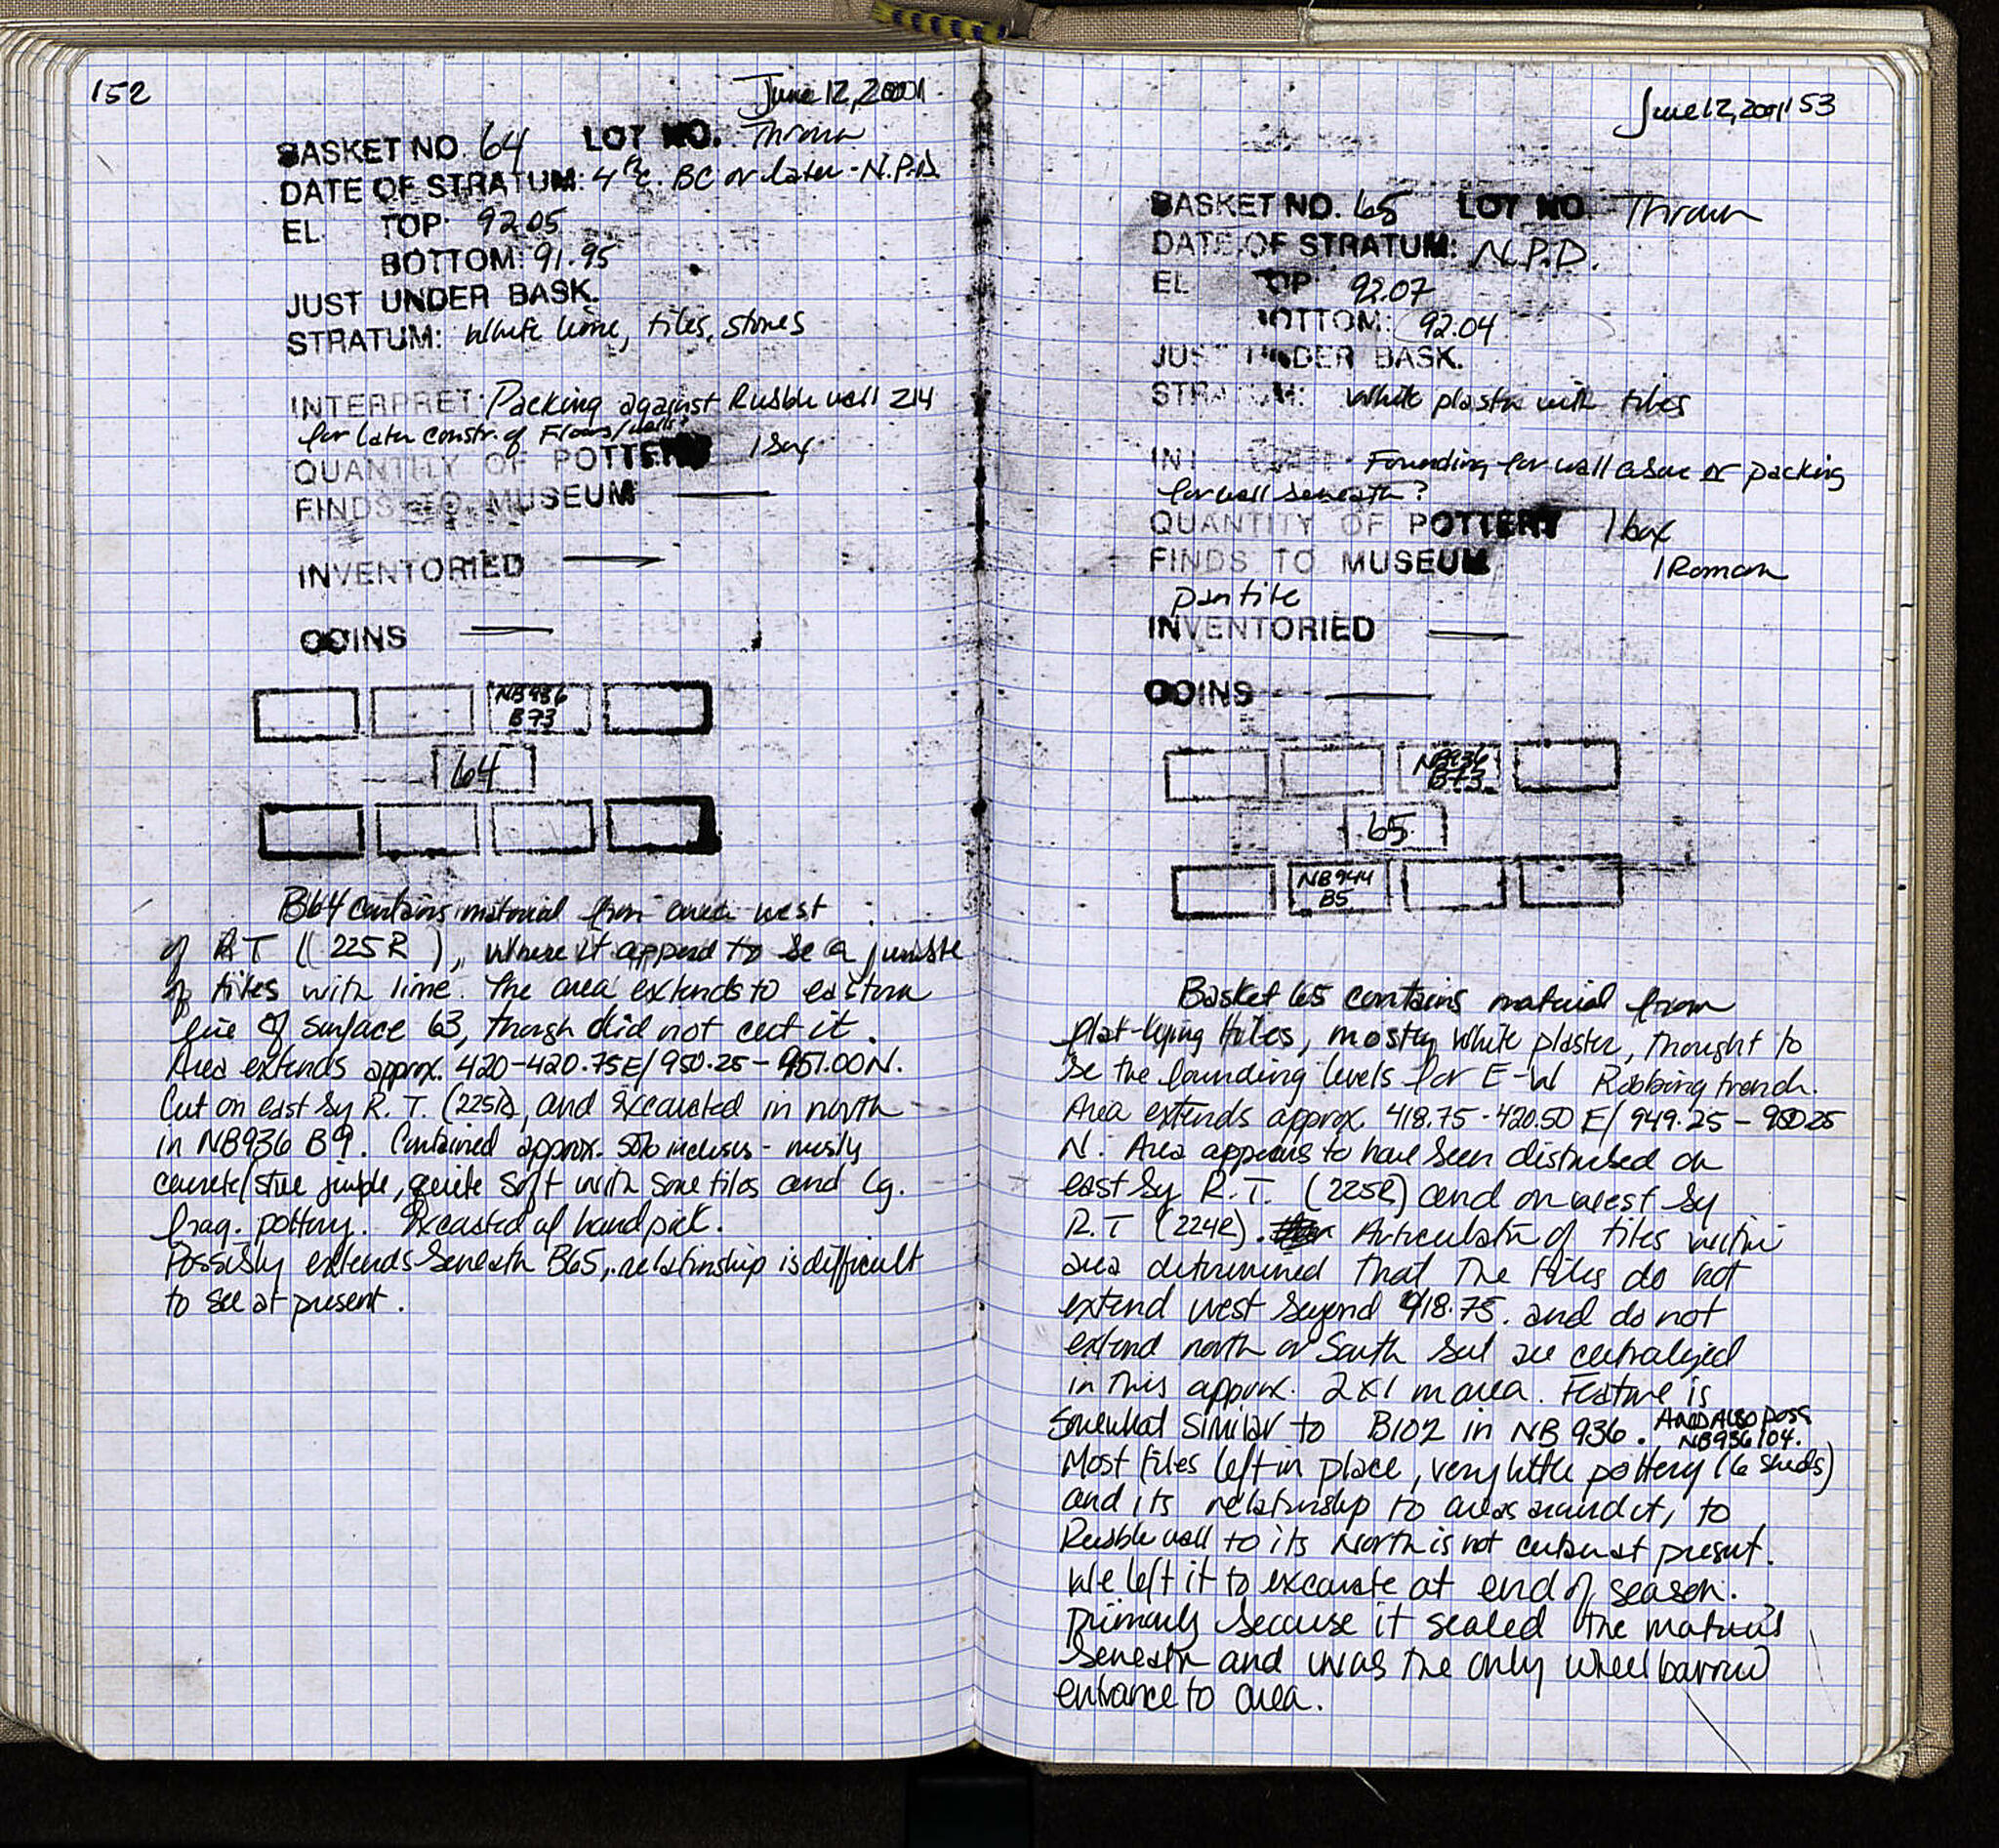 152
June 12, 2001
BASKET NO. 64 LOT NO. Thrown
DATE OF STRATUM: 4th c. BC or later - N.P.D.
EL. TOP: 92.05
BOTTOM: 91.95
JUST UNDER BASK.
STRATUM: White lime, tiles, stones
INTERPRET: Packing against Rubble wall 214
for later constr. of Floors/walls?
QUANTITY OF POTTERY 1 box
FINDS TO MUSEUM —
INVENTORIED —
COINS —
NB936
B73
64
B64 contains material from area west
of R.T. (225R), where it appeared to be a jumble
of tiles with lime. The area extends to eastern
line of surface 63, though did not cut it.
Area extends approx. 420-420.75E/950.25-951.00N.
Cut on east by R.T. (225R), and excavated in north
in NB936 B9. Contained approx. 50% inclus - mostly
concrete/stone jumble, quite soft with some tiles and Lg.
frag. pottery. Excavated w/ handpick.
Possibly extends beneath B65, relationship is difficult
to see at present.
June 12, 2001 153
BASKET NO. 65 LOT NO. Thrown
DATE OF STRATUM: N.P.D.
EL TOP 92.07
BOTTOM: 92.04
JUST UNDER BASK.
STRATUM: White plaster with tiles
INTERPRET: Founding for wall above or packing
for wall beneath?
QUANTITY OF POTTERY 1 box
FINDS TO MUSEUM 1 Roman
pantile
INVENTORIED —
COINS —
NB936
B73
65
NB944
B5
Basket 65 contains material from
flat-lying tiles, mostly white plaster, thought to
be the founding levels for E-W Robbing trench.
Area extends approx. 418.75-420.50 E/ 949.25-950.25
N. Area appears to have been disturbed on
east by R.T. (225R) and on west by
R.T (224R). Articulatn of tiles within
area determined that the tiles do not
extend west beyond 418.75. and do not
extend north or South but are centralized
in this approx. 2x1 m area. Feature is
somewhat similar to B102 in NB 936. And Also poss.
NB936 104.
Most tiles left in place, very little pottery (6 sherds)
and its relationship to areas around it, to
Rubble wall to its North is not certain at present.
We left it to excavate at end of season.
primarily because it sealed the materials
beneath and was the only wheelbarrow
entrance to area.